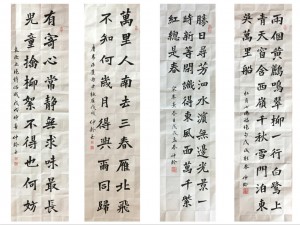 兩個黃鸝鳴翠柳一行白鷺上
青天窗含西嶺千秋雪門泊東
吳萬里船
勝日尋芳泗水濱無邊光景一
時新等閑識得東風面萬千紫
紅總是春
萬里人南去三春雁北飛
不知何歲月得與同歸
有寄心常靜無求味最長
兒童撿柳絮不得也何妨